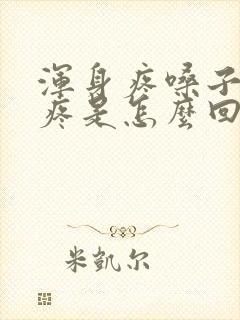 渾身疼嗓子
疼是怎麼回
米凱尔